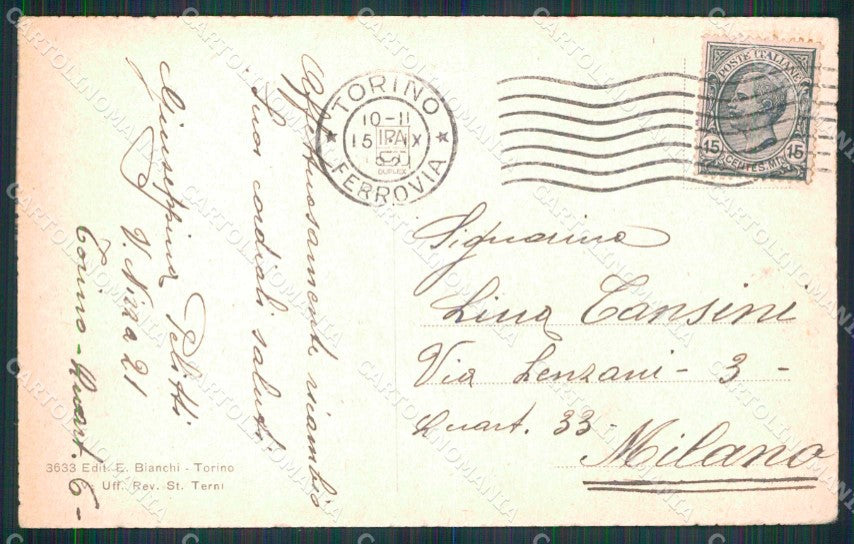 Affettuosamente ricambio
suoi cordiali saluti
Giuseppina
V. Nizza 21
Torino - Quart. 6 -
TORINO
10-11
15 IX
FERROVIA
DUPLEX
POSTE ITALIANE
15 CENTESIMI 15
Signorina
Lina Tansini
Via Lenzani - 3 -
Quart. 33 -
Milano
3633 Edit. E. Bianchi - Torino
V. Uff. Rev. St. Terni
CARTOLINOMANIA